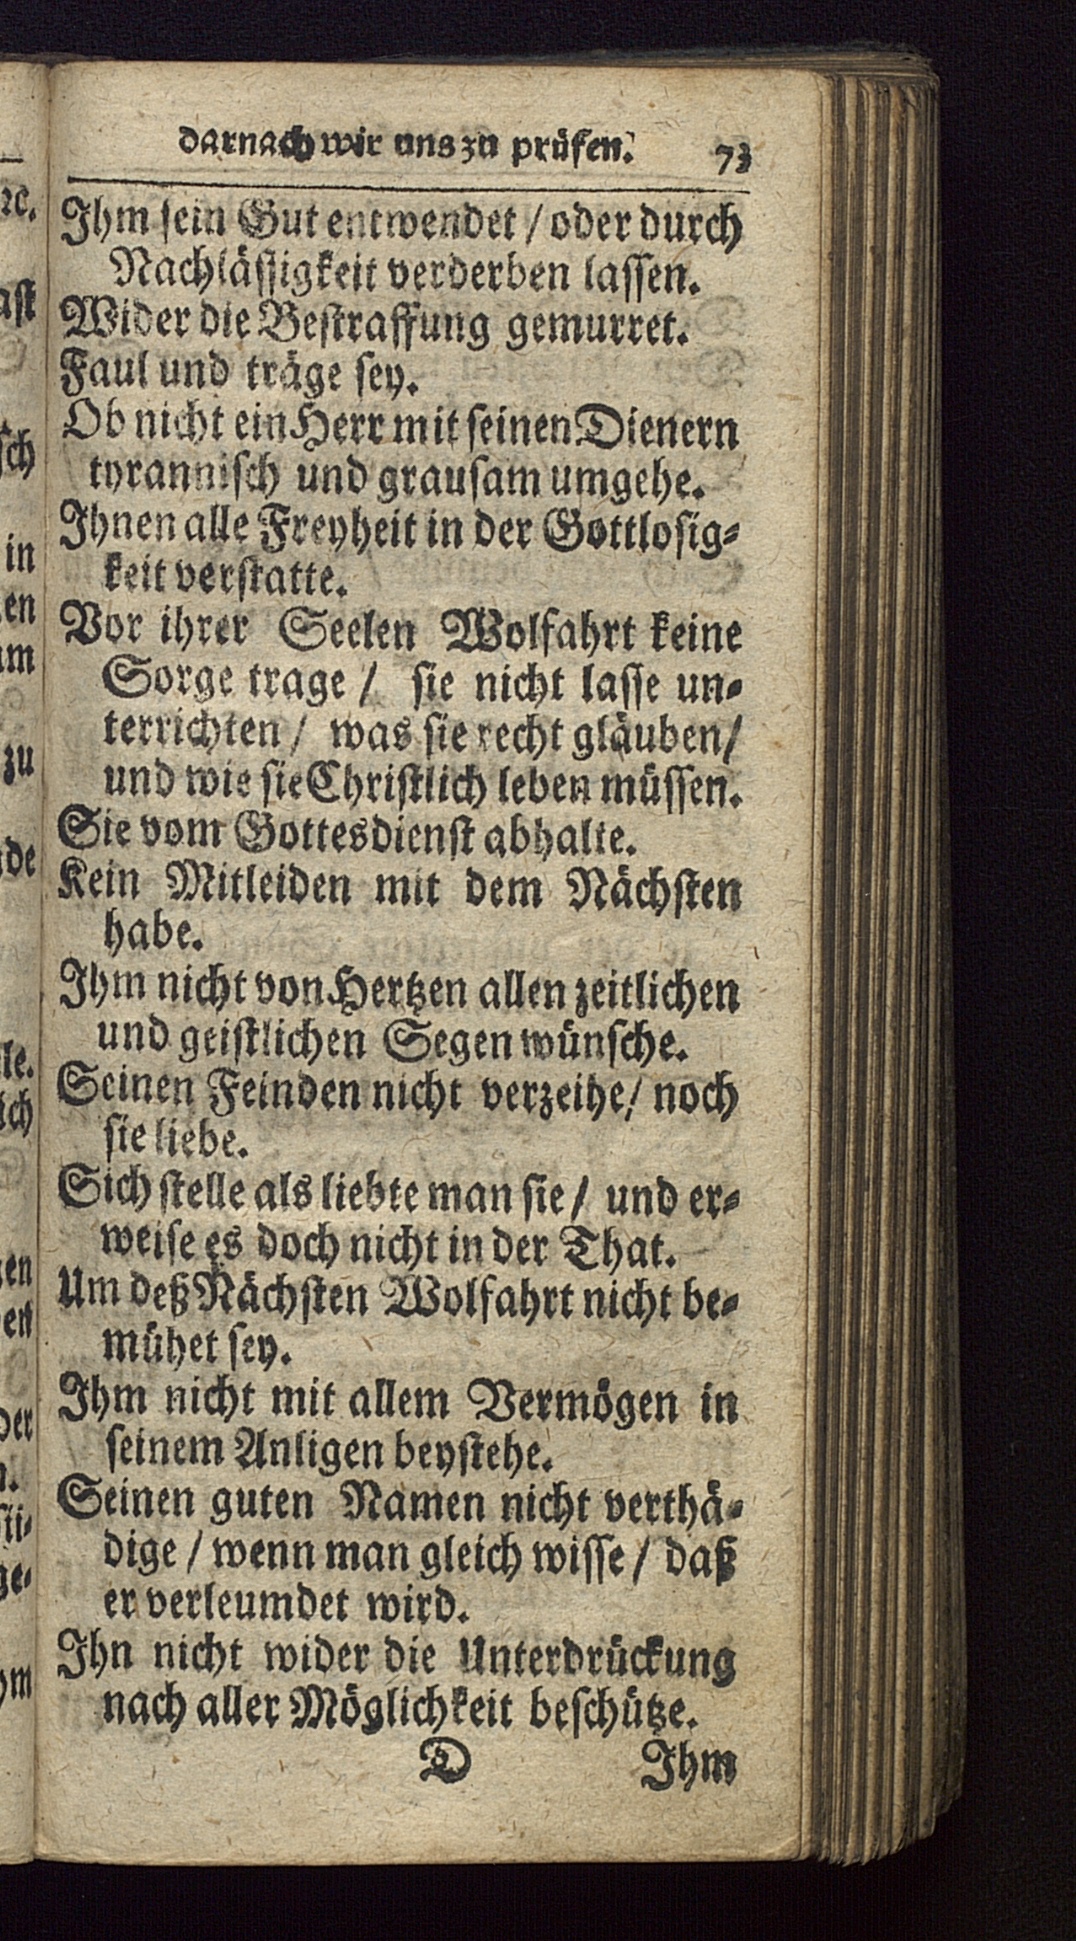 darnach wir uns zu prüfen. 73
Ihm sein Gut entwendet / oder durch
Nachlässigkeit verderben lassen.
Wider die Bestraffung gemurret.
Faul und träge sey.
Ob nicht ein Herr mit seinen Dienern
tyrannisch und grausam umgehe.
Ihnen alle Freyheit in der Gottlosig-
keit verstatte.
Vor ihrer Seelen Wolfahrt keine
Sorge trage / sie nicht lasse un-
terrichten / was sie recht gläuben /
und wie sie Christlich leben müssen.
Sie vom Gottesdienst abhalte.
Kein Mitleiden mit dem Nächsten
habe.
Ihm nicht von Hertzen allen zeitlichen
und geistlichen Segen wünsche.
Seinen Feinden nicht verzeihe / noch
sie liebe.
Sich stelle als liebte man sie / und er-
weise es doch nicht in der That.
Um deß Nächsten Wolfahrt nicht be-
mühet sey.
Ihm nicht mit allem Vermögen in
seinem Anligen beystehe.
Seinen guten Namen nicht verthä-
dige / wenn man gleich wisse / daß
er verleumdet wird.
Ihn nicht wider die Unterdrückung
nach aller Möglichkeit beschütze.
D Ihm